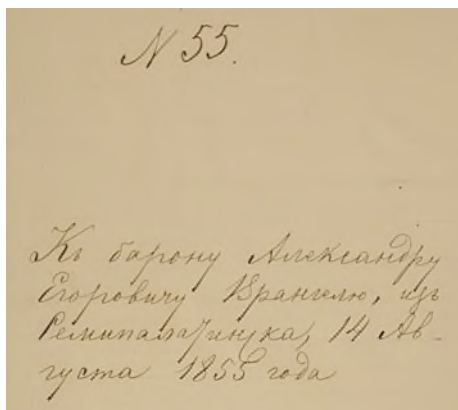 N 55.
Къ барону Александру
Егоровичу Врангелю, изъ
Семипалатинска, 14 Ав-
густа 1855 года